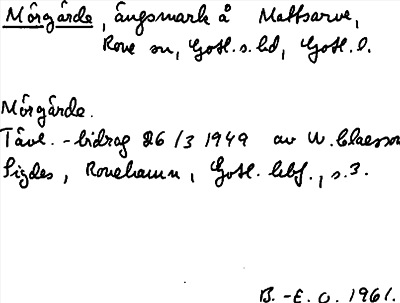 Mårgårde, ängsmark å Mattsarve,
Rone sn, Gotl. s. hd, Gotl. l.
Mårgårde.
Tävl. - bidrag 26/3 1949 av W. Claesson
Sigdes, Ronehamn, Gotl. lbf., s. 3.
B. - E. O. 1961.